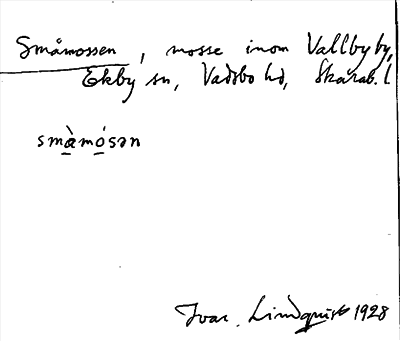 Småmossen, mosse inom Vallby by,
Ekby sn, Vadsbo hd, Skarab. l
smà̱mó̱sən
Ivar Lindquist 1928